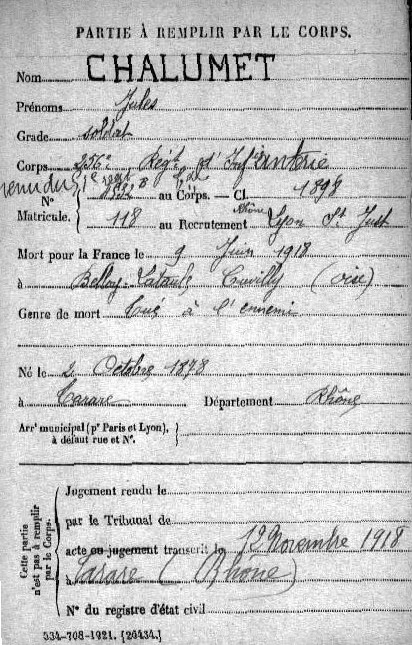 PARTIE À REMPLIR PAR LE CORPS.
Nom CHALUMET
Prénoms Jules
Grade soldat
Corps 256e Régt d'Infanterie
venu du
N° au Corps. — Cl. 1898
Matricule. 118 au Recrutement Rhône Lyon St Just
Mort pour la France le 9 Juin 1918
à Belloy Cuvilly (Oise)
Genre de mort Tué à l'ennemi
Né le 2 Octobre 1878
à Tarare Département Rhône
Arrt municipal (pr Paris et Lyon), à défaut rue et N°.
Cette partie n'est pas à remplir par le Corps.
Jugement rendu le
par le Tribunal de
acte ou jugement transcrit le 19 Novembre 1918
à Tarare (Rhône)
N° du registre d'état civil
534-708-1921. [26434.]